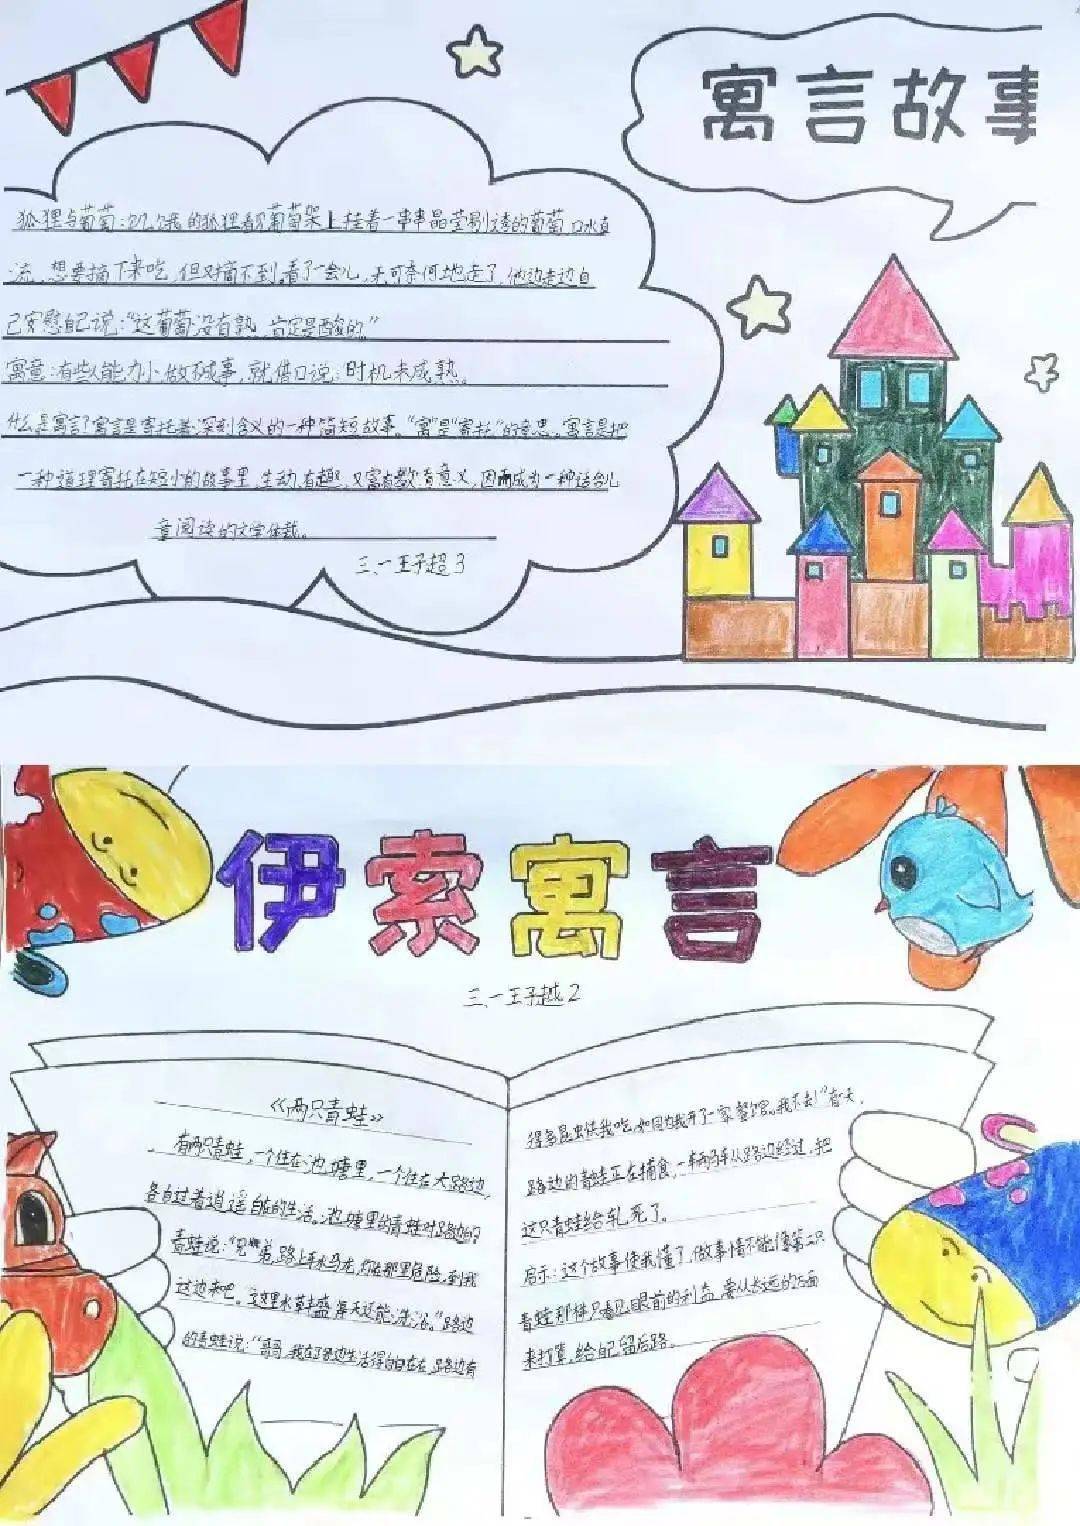 寓言故事
狐狸与葡萄:饥饿的狐狸看见葡萄架上挂着一串串晶莹剔透的葡萄,口水直
流,想要摘下来吃,但又摘不到。看了一会儿,无可奈何地走了,他边走边自
己安慰自己说:“这葡萄没有熟,肯定是酸的。”
寓意:有些人能力小,做不成事,就借口说:时机未成熟。
什么是寓言?寓言是寄托着深刻含义的一种简短故事。“寓”是“寄托”的意思。寓言是把
一种道理寄托在短小的故事里,生动、有趣,又富有教育意义,因而成为一种适合儿
童阅读的文学体裁。
三、一王子超3
伊索寓言
三、一王子越2
《两只青蛙》
有两只青蛙,一个住在池塘里,一个住在大路边,
各自过着逍遥自在的生活。池塘里的青蛙对路边的
青蛙说:“兄弟,路上车水马龙,你在那里危险,到我
这边来吧。这里水草丰盛,每天还能洗浴。”路边
的青蛙说:“哥哥,我在路边生活得自由自在,路边有
很多昆虫供我吃,如同为我开了一家餐馆。我不去!”有一天,
路边的青蛙正在捕食,一辆马车从路边经过,把
这只青蛙给轧死了。
启示:这个故事使我懂了,做事情不能像第二只
青蛙那样只看见眼前的利益,要从长远的方面
来打算,给自己留后路。